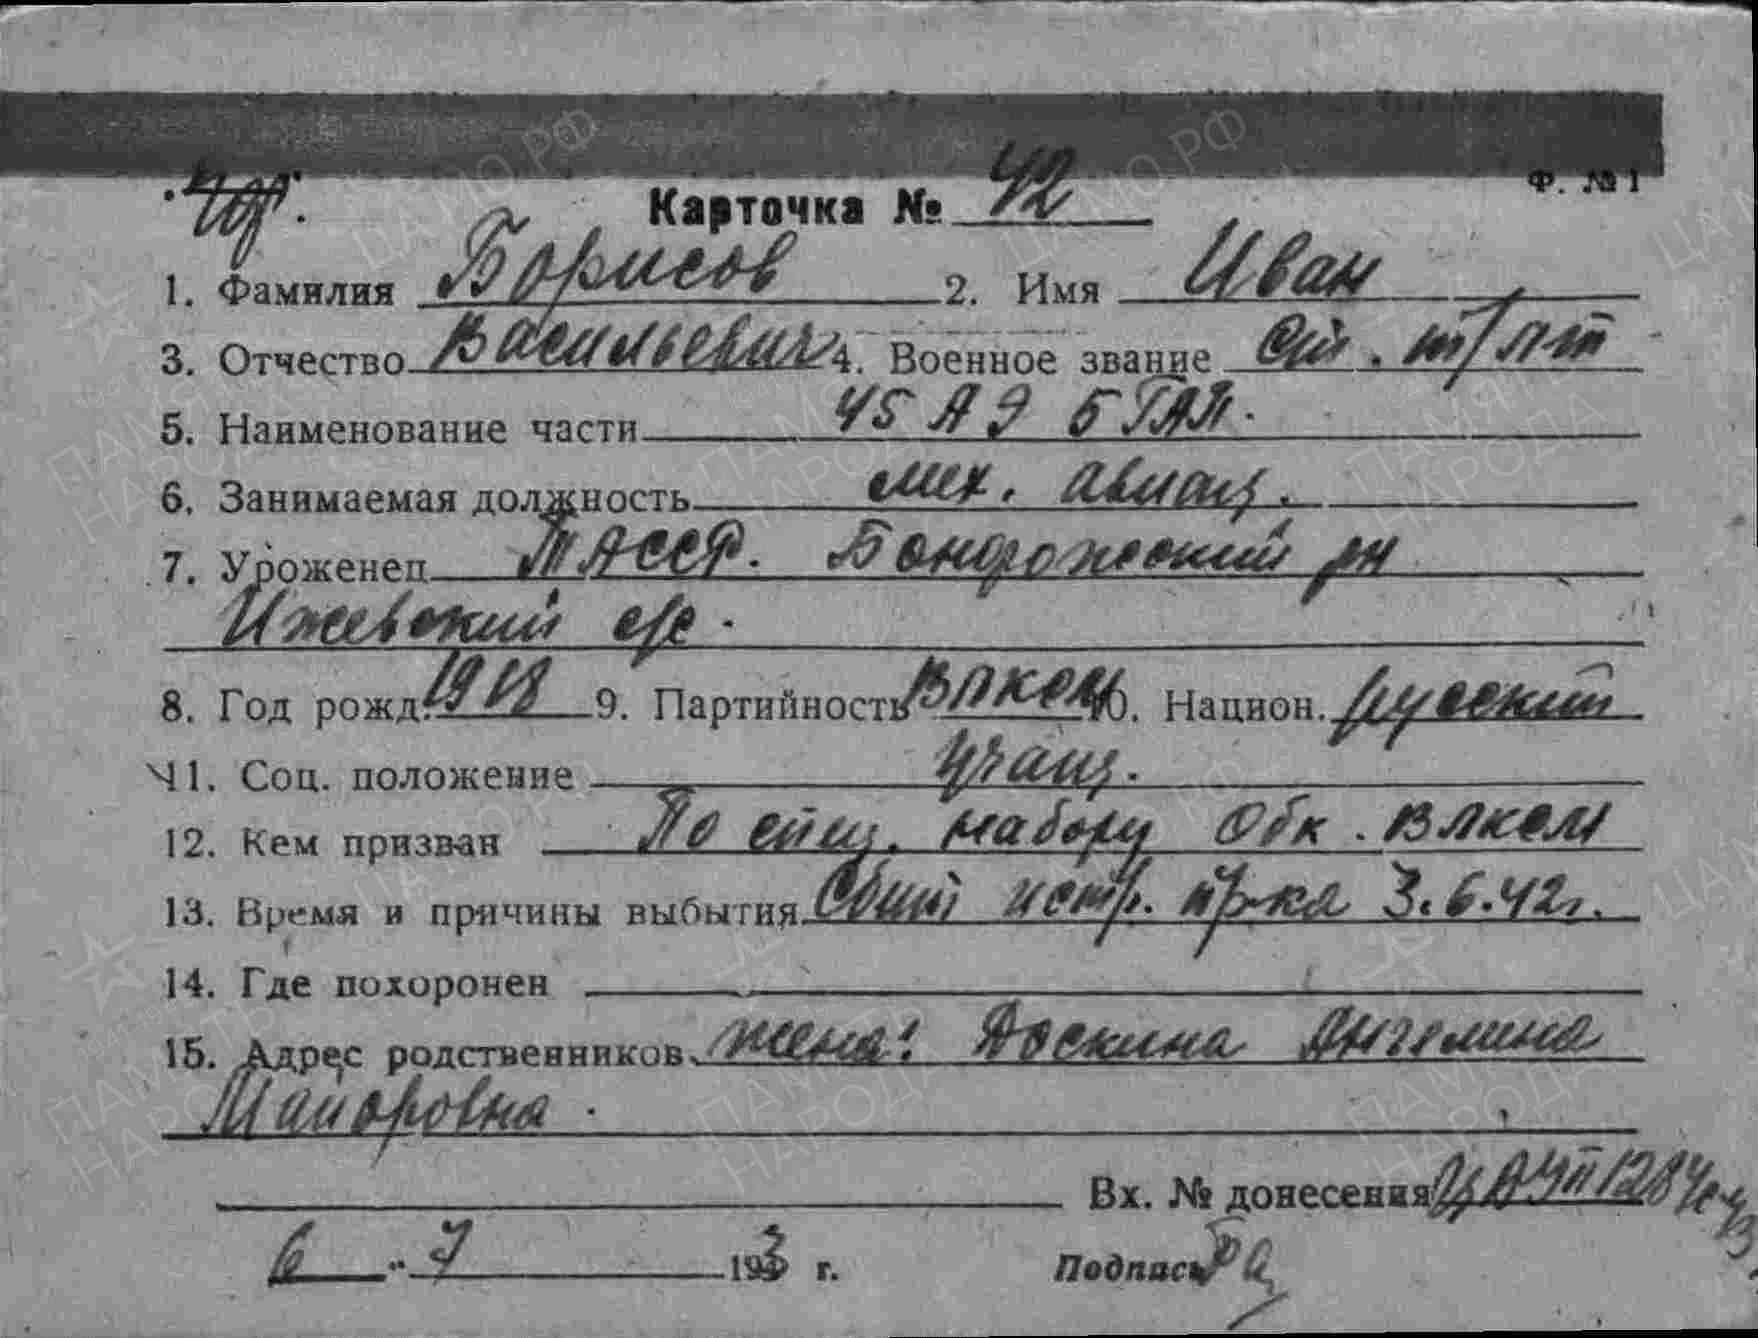 Ф. № 1
Карточка № 42
1. Фамилия Борисов 2. Имя Иван
3. Отчество Васильевич 4. Военное звание Ст. т/лт
5. Наименование части 45 АЭ 5 ГАП.
6. Занимаемая должность мех. авиац.
7. Уроженец ТАССР. Бондюжский рн
Ижевский с/с.
8. Год рожд. 1918 9. Партийность ВЛКСМ 10. Национ. русский
11. Соц. положение учащ.
12. Кем призван По спец. набору Обк. ВЛКСМ
13. Время и причины выбытия Сбит истр. пр-ка 3.6.42г.
14. Где похоронен
15. Адрес родственников жена: Доскина Ангелина
Майоровна.
Вх. № донесения 1284с-43
6 " 7 1943 г. Подпись